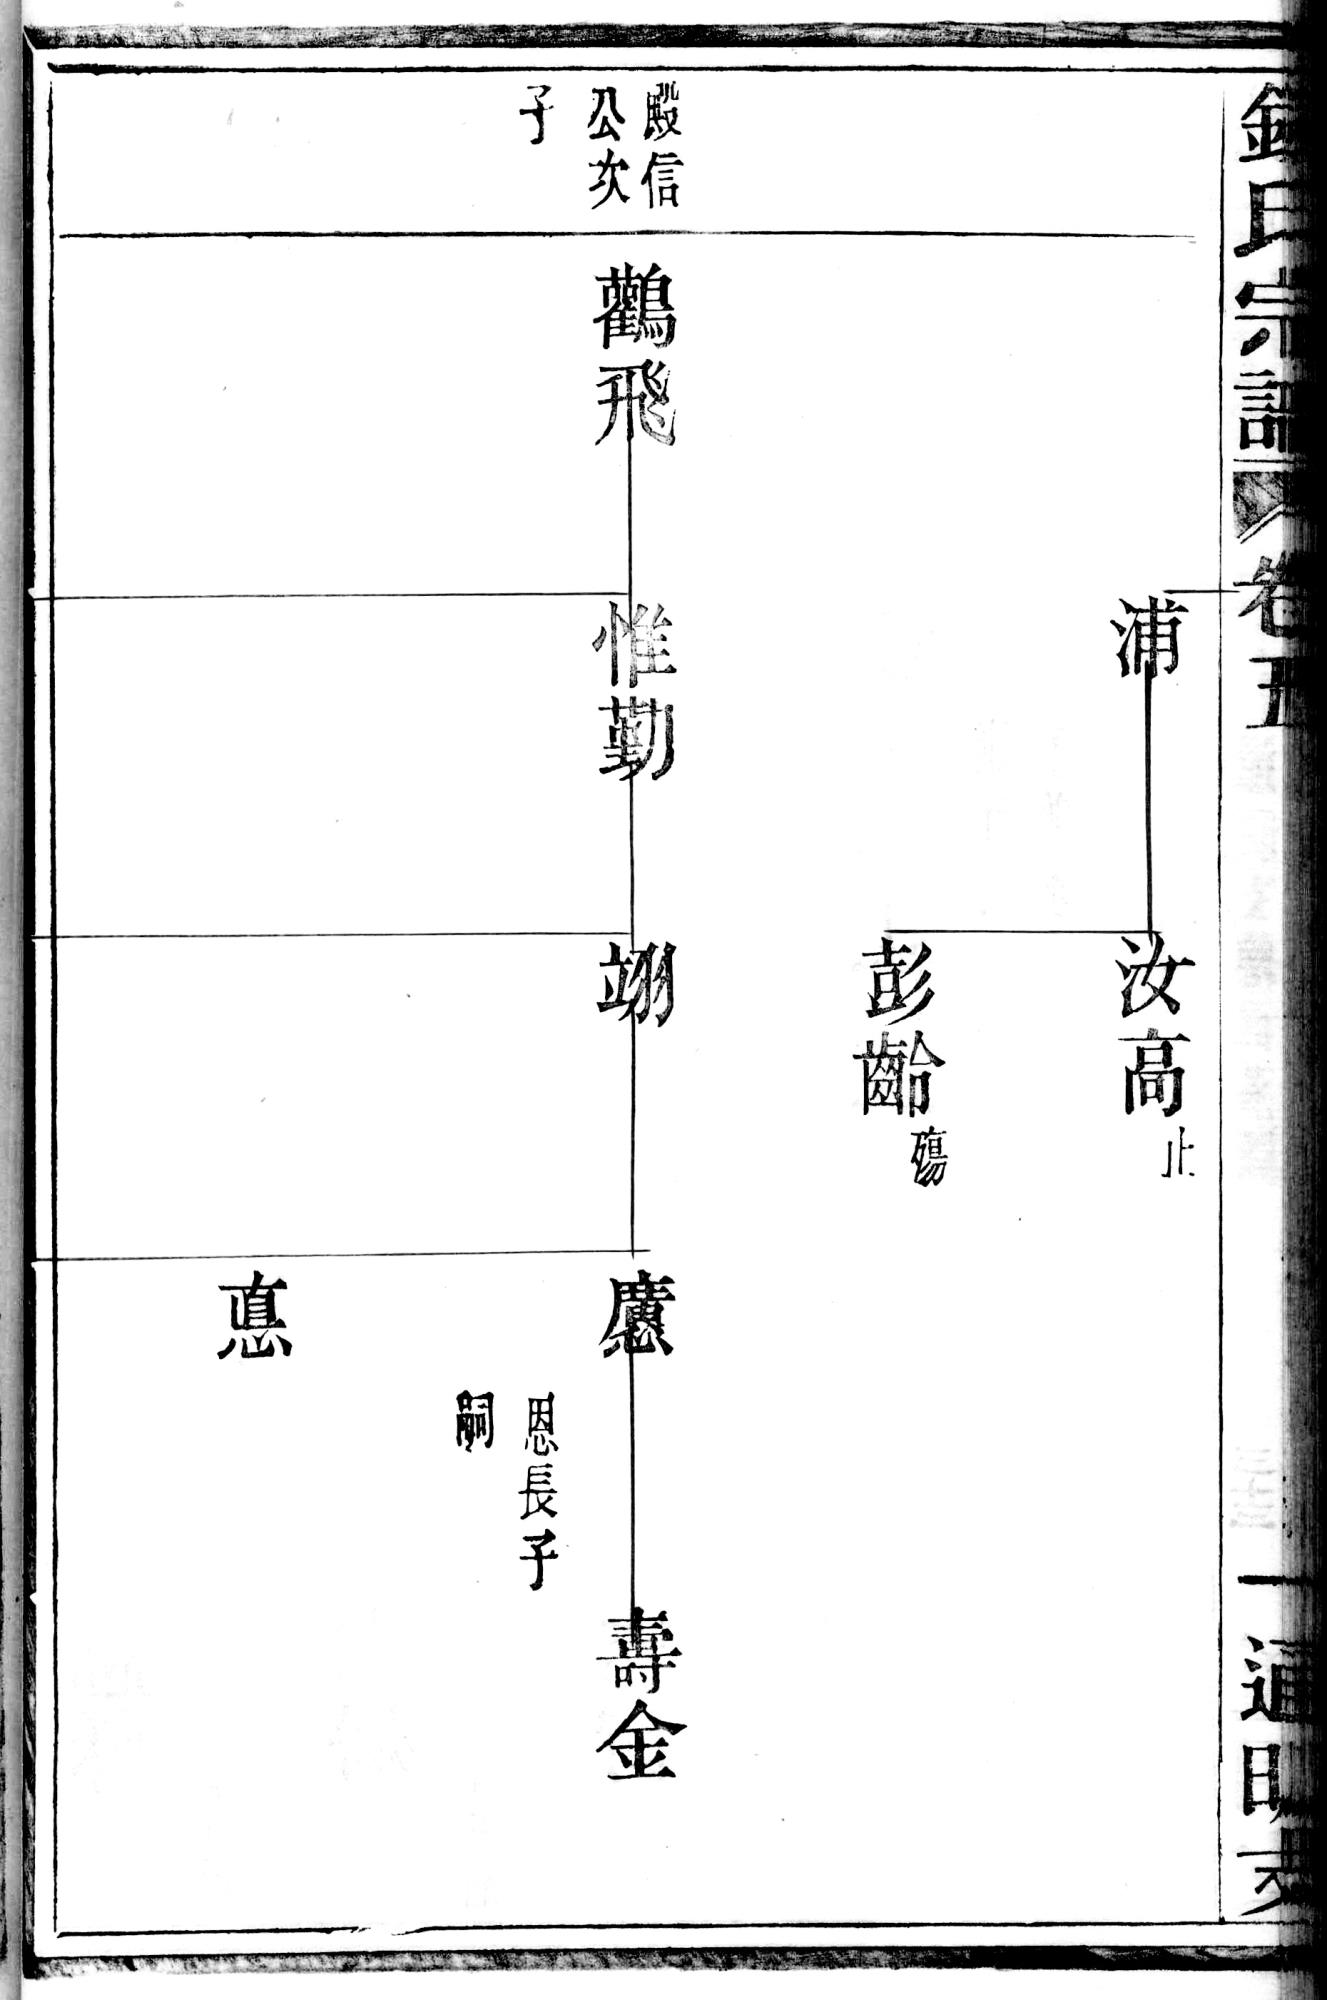 氏宗譜
卷五
浦
汝高
止
彭齡
殤
殿信
公次
子
鸛飛
惟勤
翊
恩長子
嗣
壽金
悳